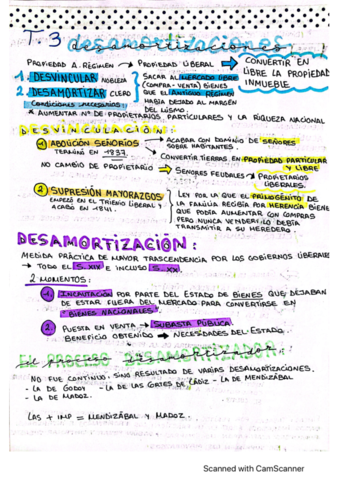 T-3 desamortizaciones!
PROPIEDAD A. RÉGIMEN → PROPIEDAD LIBERAL → CONVERTIR EN
LIBRE LA PROPIEDAD
INMUEBLE.
1. DESVINCULAR NOBLEZA
2. DESAMORTIZAR CLERO
SACAR AL MERCADO LIBRE
(COMPRA-VENTA) BIENES
QUE EL ANTIGUO RÉGIMEN
HABÍA DEJADO AL MARGEN
DEL MISMO.
Condiciones necesarias:
AUMENTAR Nº DE PROPIETARIOS PARTICULARES Y LA RIQUEZA NACIONAL
DESVINCULACIÓN:
1 ABOLICIÓN SEÑORÍOS
TERMINÓ EN 1837
→ ACABAR CON DOMINIO DE SEÑORES
SOBRE HABITANTES.
→ CONVERTIR TIERRAS EN PROPIEDAD PARTICULAR
Y LIBRE
NO CAMBIO DE PROPIETARIO → SEÑORES FEUDALES → PROPIETARIOS
LIBERALES.
2 SUPRESIÓN MAYORAZGOS
EMPEZÓ EN EL TRIENIO LIBERAL Y
ACABÓ EN 1841.
LEY POR LA QUE EL PRIMOGÉNITO DE
LA FAMILIA RECIBÍA POR HERENCIA BIENES
QUE PODÍA AUMENTAR CON COMPRAS
PERO NUNCA VENDER (NO DEBÍA
TRANSMITIR A SU HEREDERO).
DESAMORTIZACIÓN:
MEDIDA PRÁCTICA DE MAYOR TRASCENDENCIA POR LOS GOBIERNOS LIBERALES
→ TODO EL S. XIX E INCLUSO S. XX.
2 MOMENTOS:
1. INCAUTACIÓN POR PARTE DEL ESTADO DE BIENES QUE DEJABAN
DE ESTAR FUERA DEL MERCADO PARA CONVERTIRSE EN
"BIENES NACIONALES"
2. PUESTA EN VENTA → SUBASTA PÚBLICA.
BENEFICIO OBTENIDO → NECESIDADES DEL ESTADO.
EL PROCESO DESAMORTIZADOR:
NO FUE CONTINUO. SINO RESULTADO DE VARIAS DESAMORTIZACIONES.
- LA DE GODOY - LA DE LAS CORTES DE CÁDIZ - LA DE MENDIZÁBAL
- LA DE MADOZ.
LAS + IMP = MENDIZÁBAL Y MADOZ.
Scanned with CamScanner